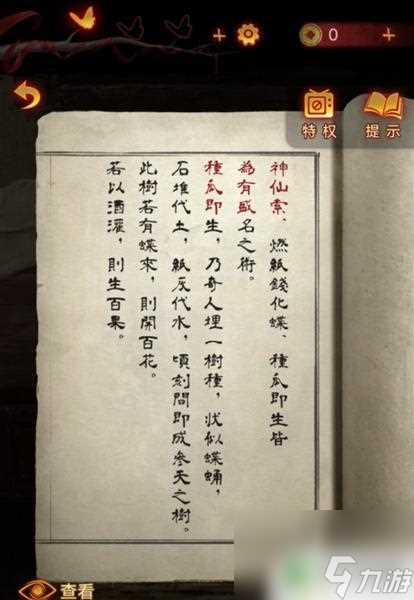 +
0
+
特权
提示
神仙索、燃紙錢化蝶、種瓜即生皆
為有盛名之術。
種瓜即生，乃奇人埋一樹種，狀似蝶蛹，
石堆代土，紙灰代水，頃刻間即成參天之樹。
此樹若有蝶來，則開百花。
若以酒灌，則生百果。
查看
九游